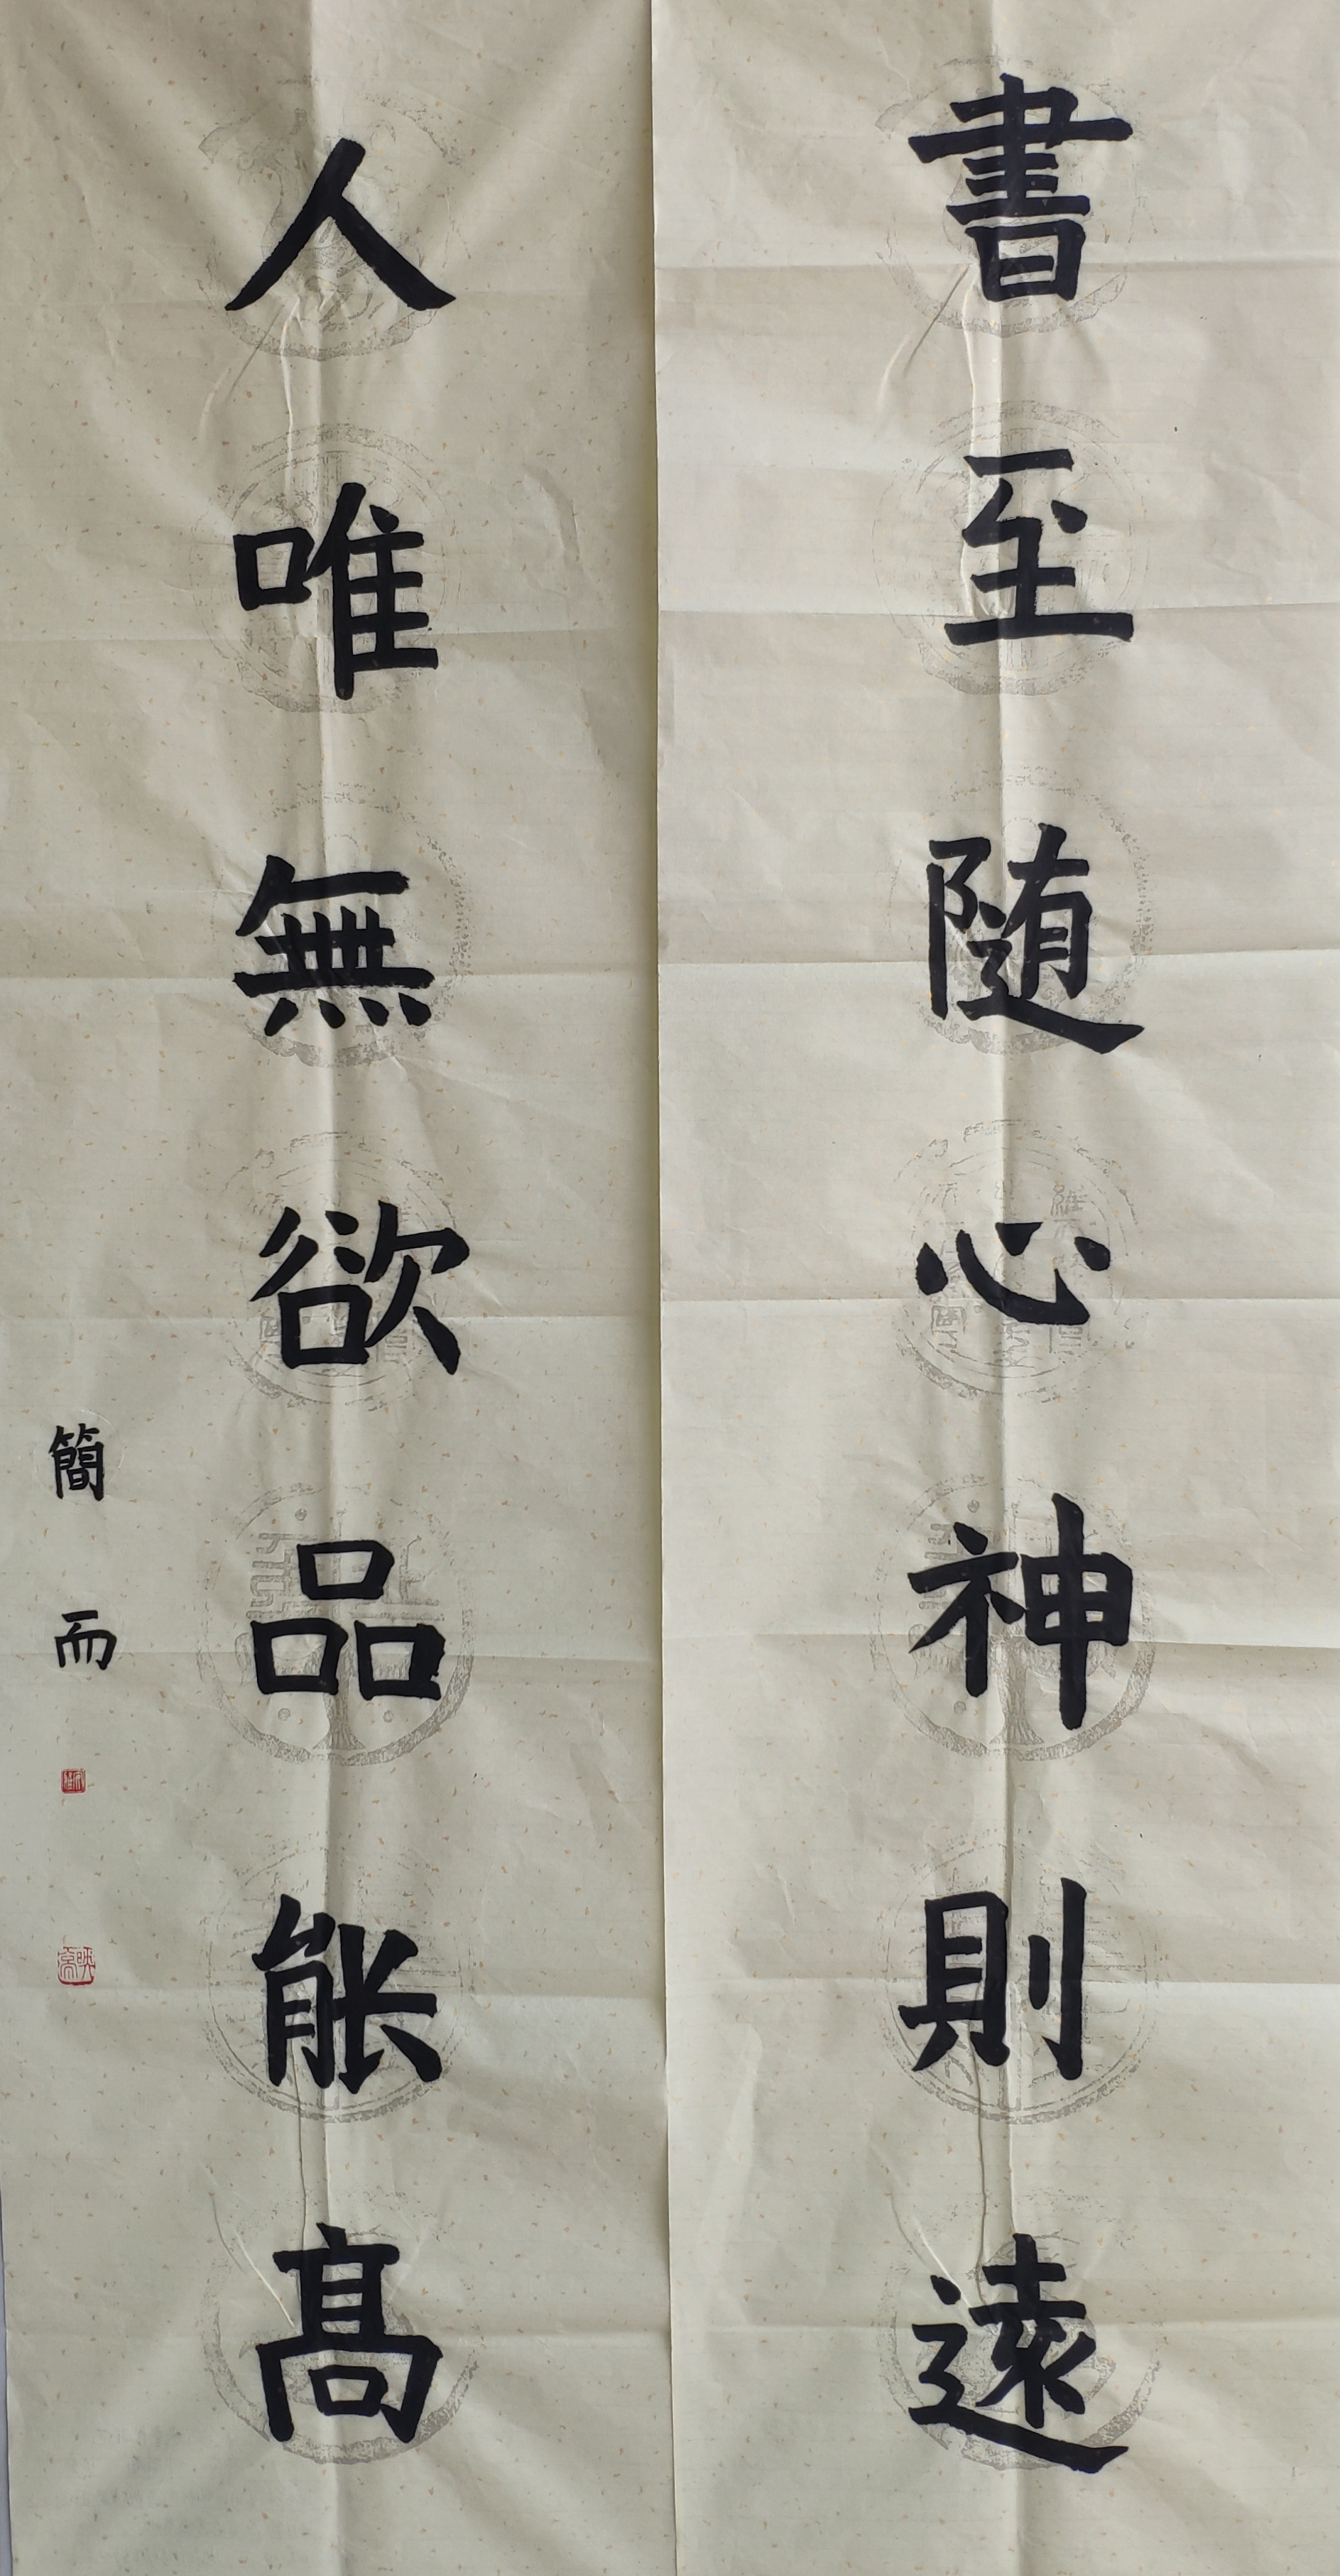 書至随心神則遠
人唯無欲品能高
簡而